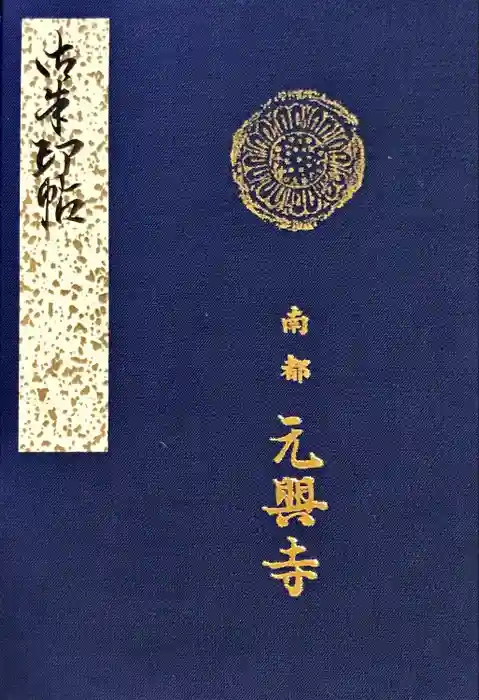 御朱印帖
南都
元興寺